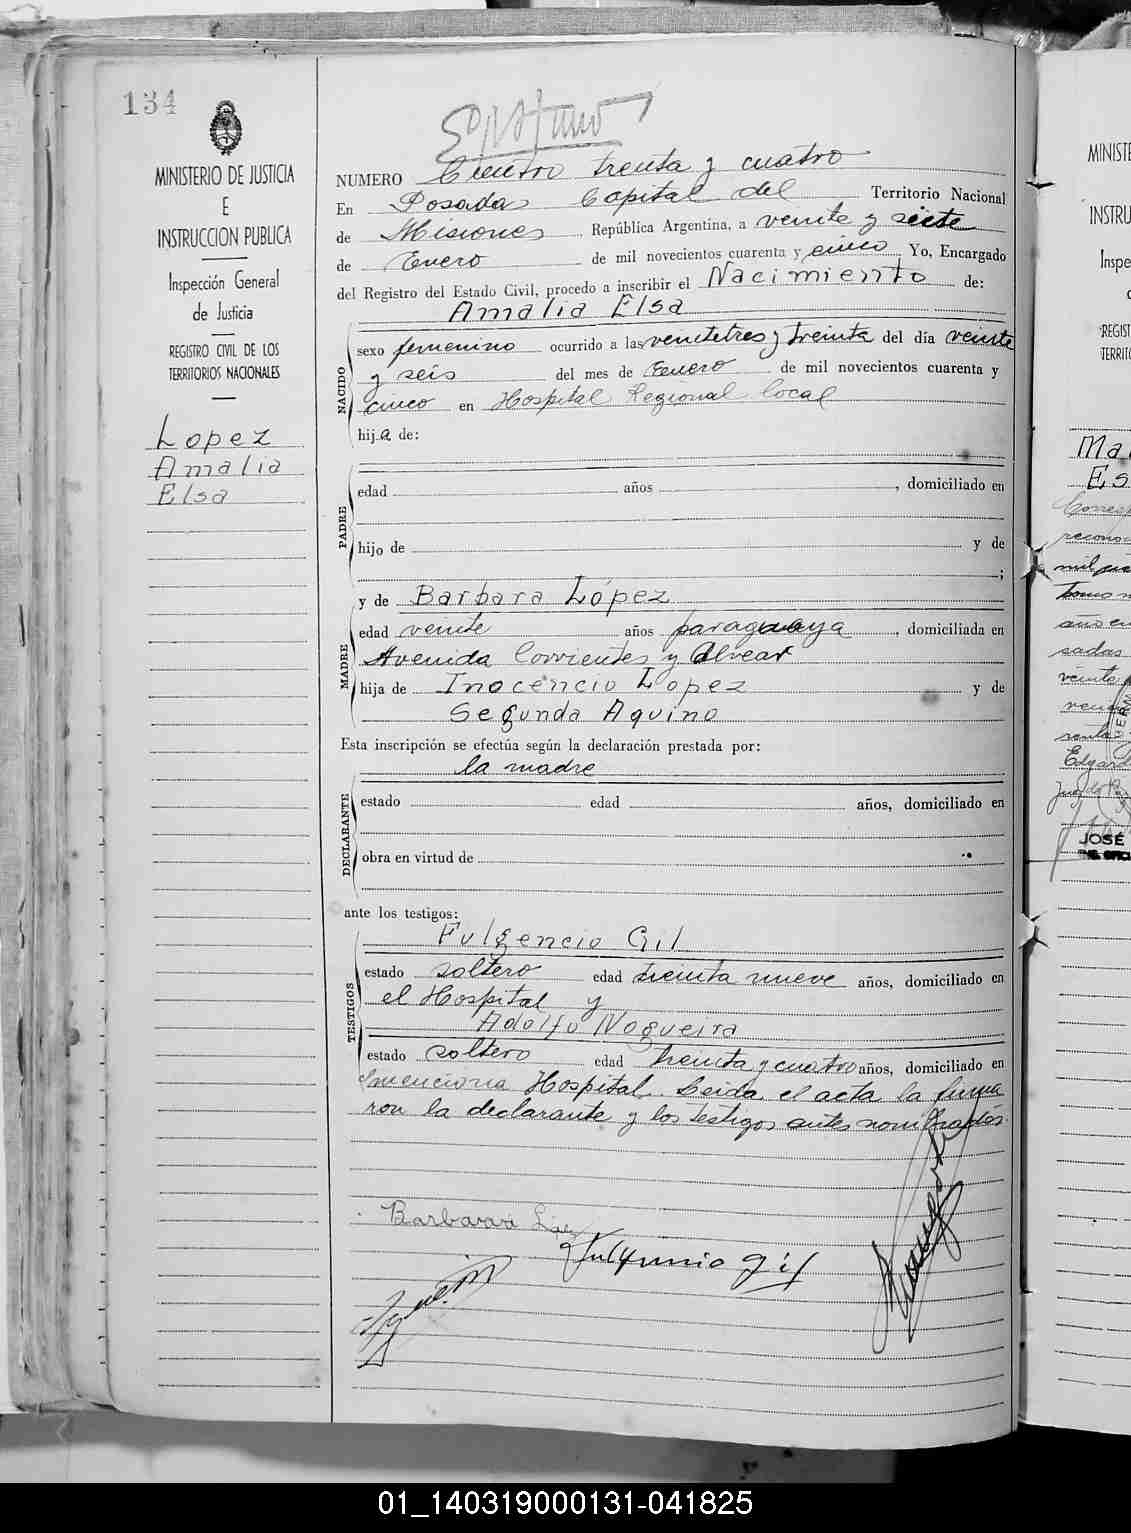 134
MINISTERIO DE JUSTICIA
E
INSTRUCCION PUBLICA
Inspección General
de Justicia
REGISTRO CIVIL DE LOS
TERRITORIOS NACIONALES
Lopez
Amalia
Elsa
NUMERO Ciento treinta y cuatro
En Posadas Capital del Territorio Nacional
de Misiones República Argentina, a veinte y siete
de Enero de mil novecientos cuarenta y cinco Yo, Encargado
del Registro del Estado Civil, procedo a inscribir el Nacimiento de:
Amalia Elsa
NACIDO
sexo femenino ocurrido a las veintetres y treinta del día veinte
y seis del mes de Enero de mil novecientos cuarenta y
cinco en Hospital Regional local
hija de:
PADRE
edad años , domiciliado en
hijo de y de
;
y de Barbara López
MADRE
edad veinte años paraguaya , domiciliada en
Avenida Corrientes y Alvear
hija de Inocencio Lopez y de
Segunda Aquino
Esta inscripción se efectúa según la declaración prestada por:
la madre
DECLARANTE
estado edad años, domiciliado en
obra en virtud de
ante los testigos:
TESTIGOS
Fulgencio Gil
estado soltero edad treinta nueve años, domiciliado en
el Hospital y
Adolfo Nogueira
estado soltero edad treinta y cuatro años, domiciliado en
Hospital. Leida el acta la firma
ron la declarante y los testigos antes nombrados.
Barbara
Fulgencio gil
MINISTE
INSTRU
Inspe
REGIST
TERRITO
Ma
Es
JOSÉ
01_140319000131-041825